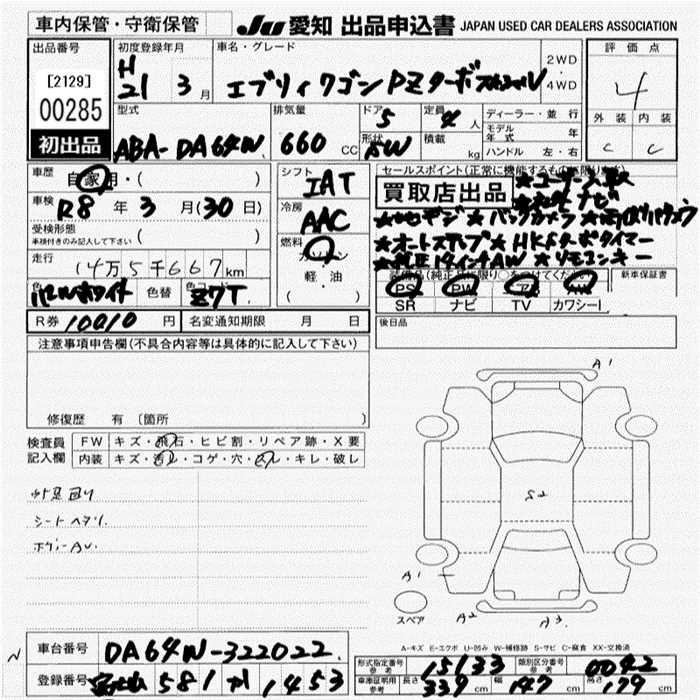 車内保管・守衛保管
JU 愛知 出品申込書 JAPAN USED CAR DEALERS ASSOCIATION
出品番号
[2129]
00285
初出品
初度登録年月
H
21 3 月
車名・グレード
エブリィワゴン PZターボスペシャル
2WD
・
4WD
評価点
4
外装 内装
C C
型式
ABA-DA64W
排気量
660 CC
ドア
5
形状
5W
定員
4 人
積載
kg
ディーラー・並行
モデル年式 年
ハンドル 左・右
車歴
自家用・( )
車検
R8 年 3 月(30日)
受検形態
車検付きのみ記入して下さい ( )
走行
14万5千667km
色 パールホワイト 色替 色コード Z7T
シフト
IAT
冷房
AAC
燃料
ガソリン
・
軽・油
( )
セールスポイント(正常に機能するもののみ限ります)
買取店出品
★ユーザー買取
★社外ナビ
★地デジ ★バックカメラ ★両側パワスラ
★オートステップ ★HKSターボタイマー
★純正14インチAW ★リモコンキー
装備品(純正品に限り○をつけてください)
PS PW エア AW
SR ナビ TV カワシート
新車保証書
後日品
R券 10010 円 名変通知期限 月 日
注意事項申告欄(不具合内容等は具体的に記入して下さい)
修復歴 有〔箇所 〕
検査員
記入欄
FW キズ・飛石・ヒビ割・リペア跡・X要
内装 キズ・汚レ・コゲ・穴・スレ・キレ・破レ
シートヘタリ
A1
S2
A1
A2
A3
スペア
A-キズ E-エクボ U-凹み W-補修跡 S-サビ C-腐食 XX-交換済
車台番号 DA64W-322022
登録番号 581 1453
形式指定番号 参考 15133 類別区分番号 参考 0042
車庫証明用 参考 長さ 339 cm 幅 147 cm 高さ 179 cm